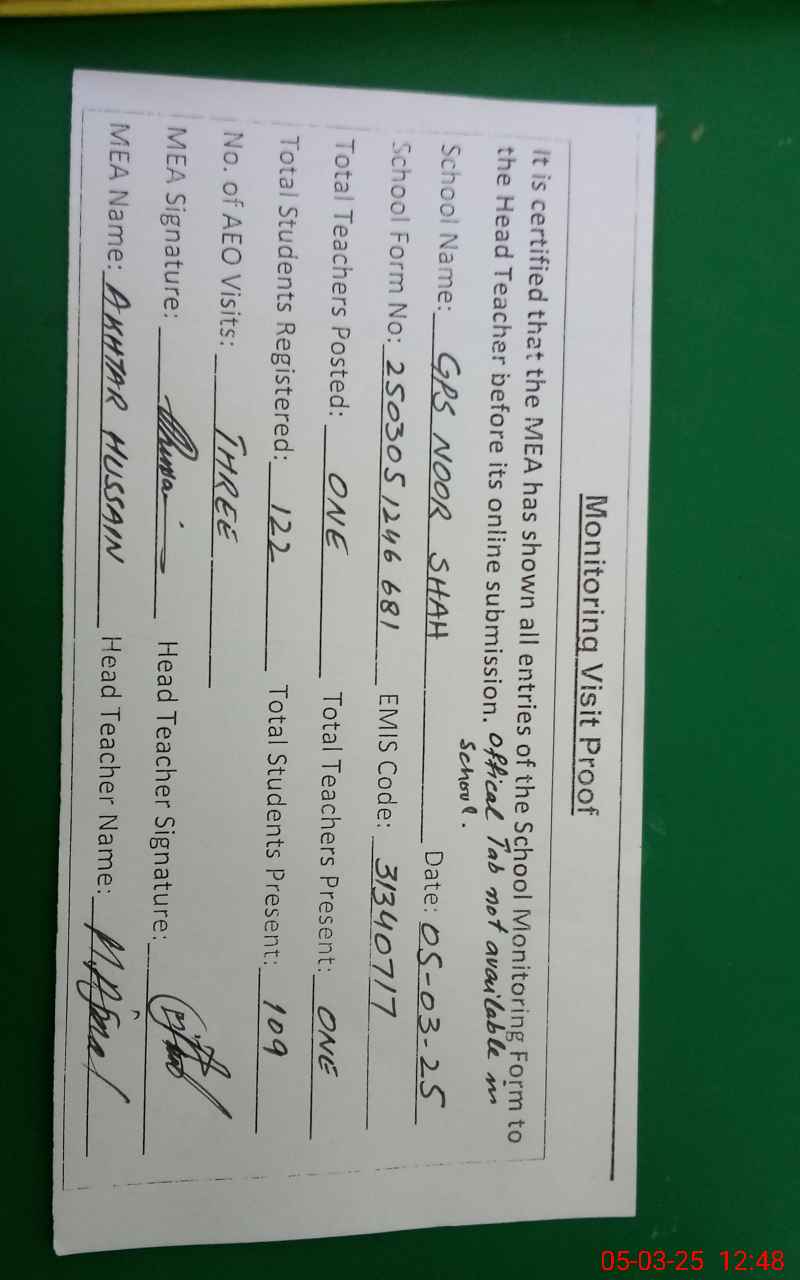 Monitoring Visit Proof
It is certified that the MEA has shown all entries of the School Monitoring Form to
the Head Teacher before its online submission. offical Tab not available in
school.
School Name: GPS NOOR SHAH Date: 05-03-25
School Form No: 250305 1246 681 EMIS Code: 31340717
Total Teachers Posted: ONE Total Teachers Present: ONE
Total Students Registered: 122 Total Students Present: 109
No. of AEO Visits: THREE
MEA Signature: Head Teacher Signature:
MEA Name: AKHTAR HUSSAIN Head Teacher Name:
05-03-25 12:48